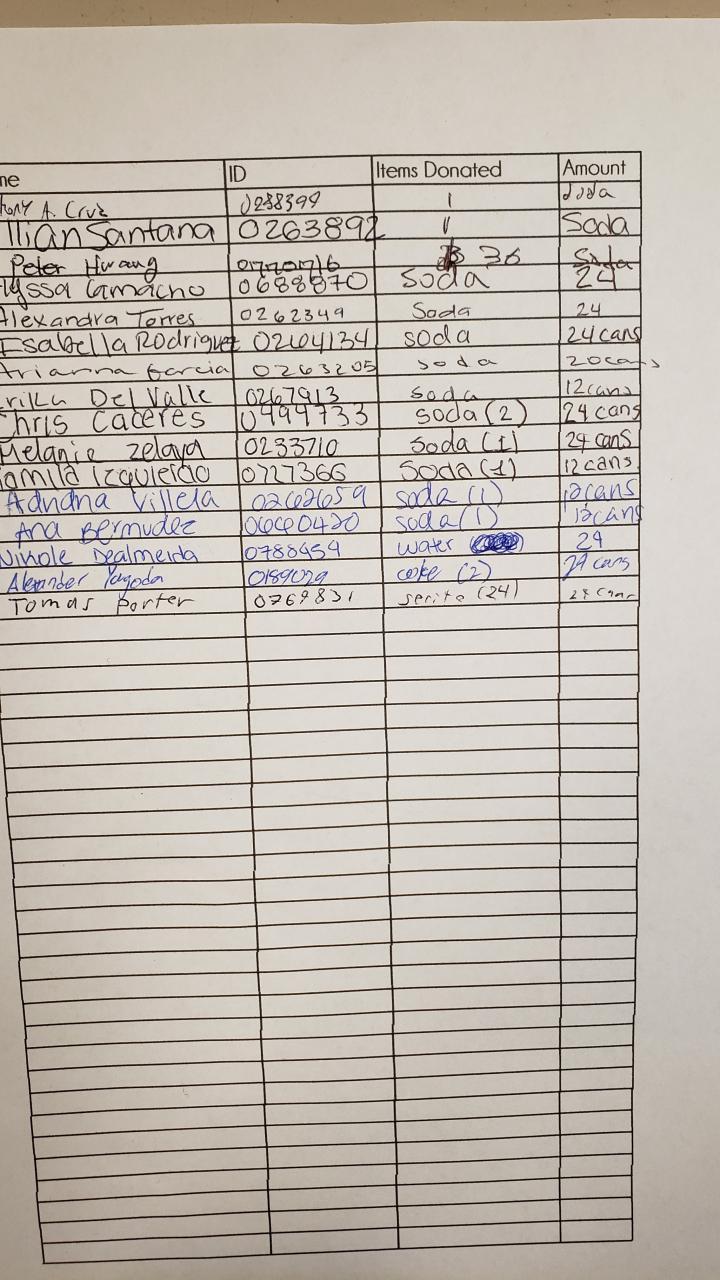 me ID Items Donated Amount
hony A. Cruz 0238399 1 soda
llian Santana 0263892 11 Soda
Peter Hwang 36 Soda
lyssa Camacho 0688870 soda 24
Alexandra Torres 0262349 Soda 24
Esabella Rodriguez 02604134 soda 24 cans
Arianna Garcia 0263205 soda 20 cans
rika Del Valle 0267913 soda 12 cans
Chris Caceres 0494733 soda (2) 24 cans
Melanie Zelaya 0233710 Soda (1) 24 cans
amila Izquierdo 0727366 Soda (1) 12 cans
Adriana Villela 0262659 soda (1) 12 cans
Ana Bermudez 0660420 soda (1) 12 cans
Nikole Dealmeida 0788454 water 24
Alexander Pagoda 0189029 coke (2) 24 cans
Tomas Porter 0769831 (24)